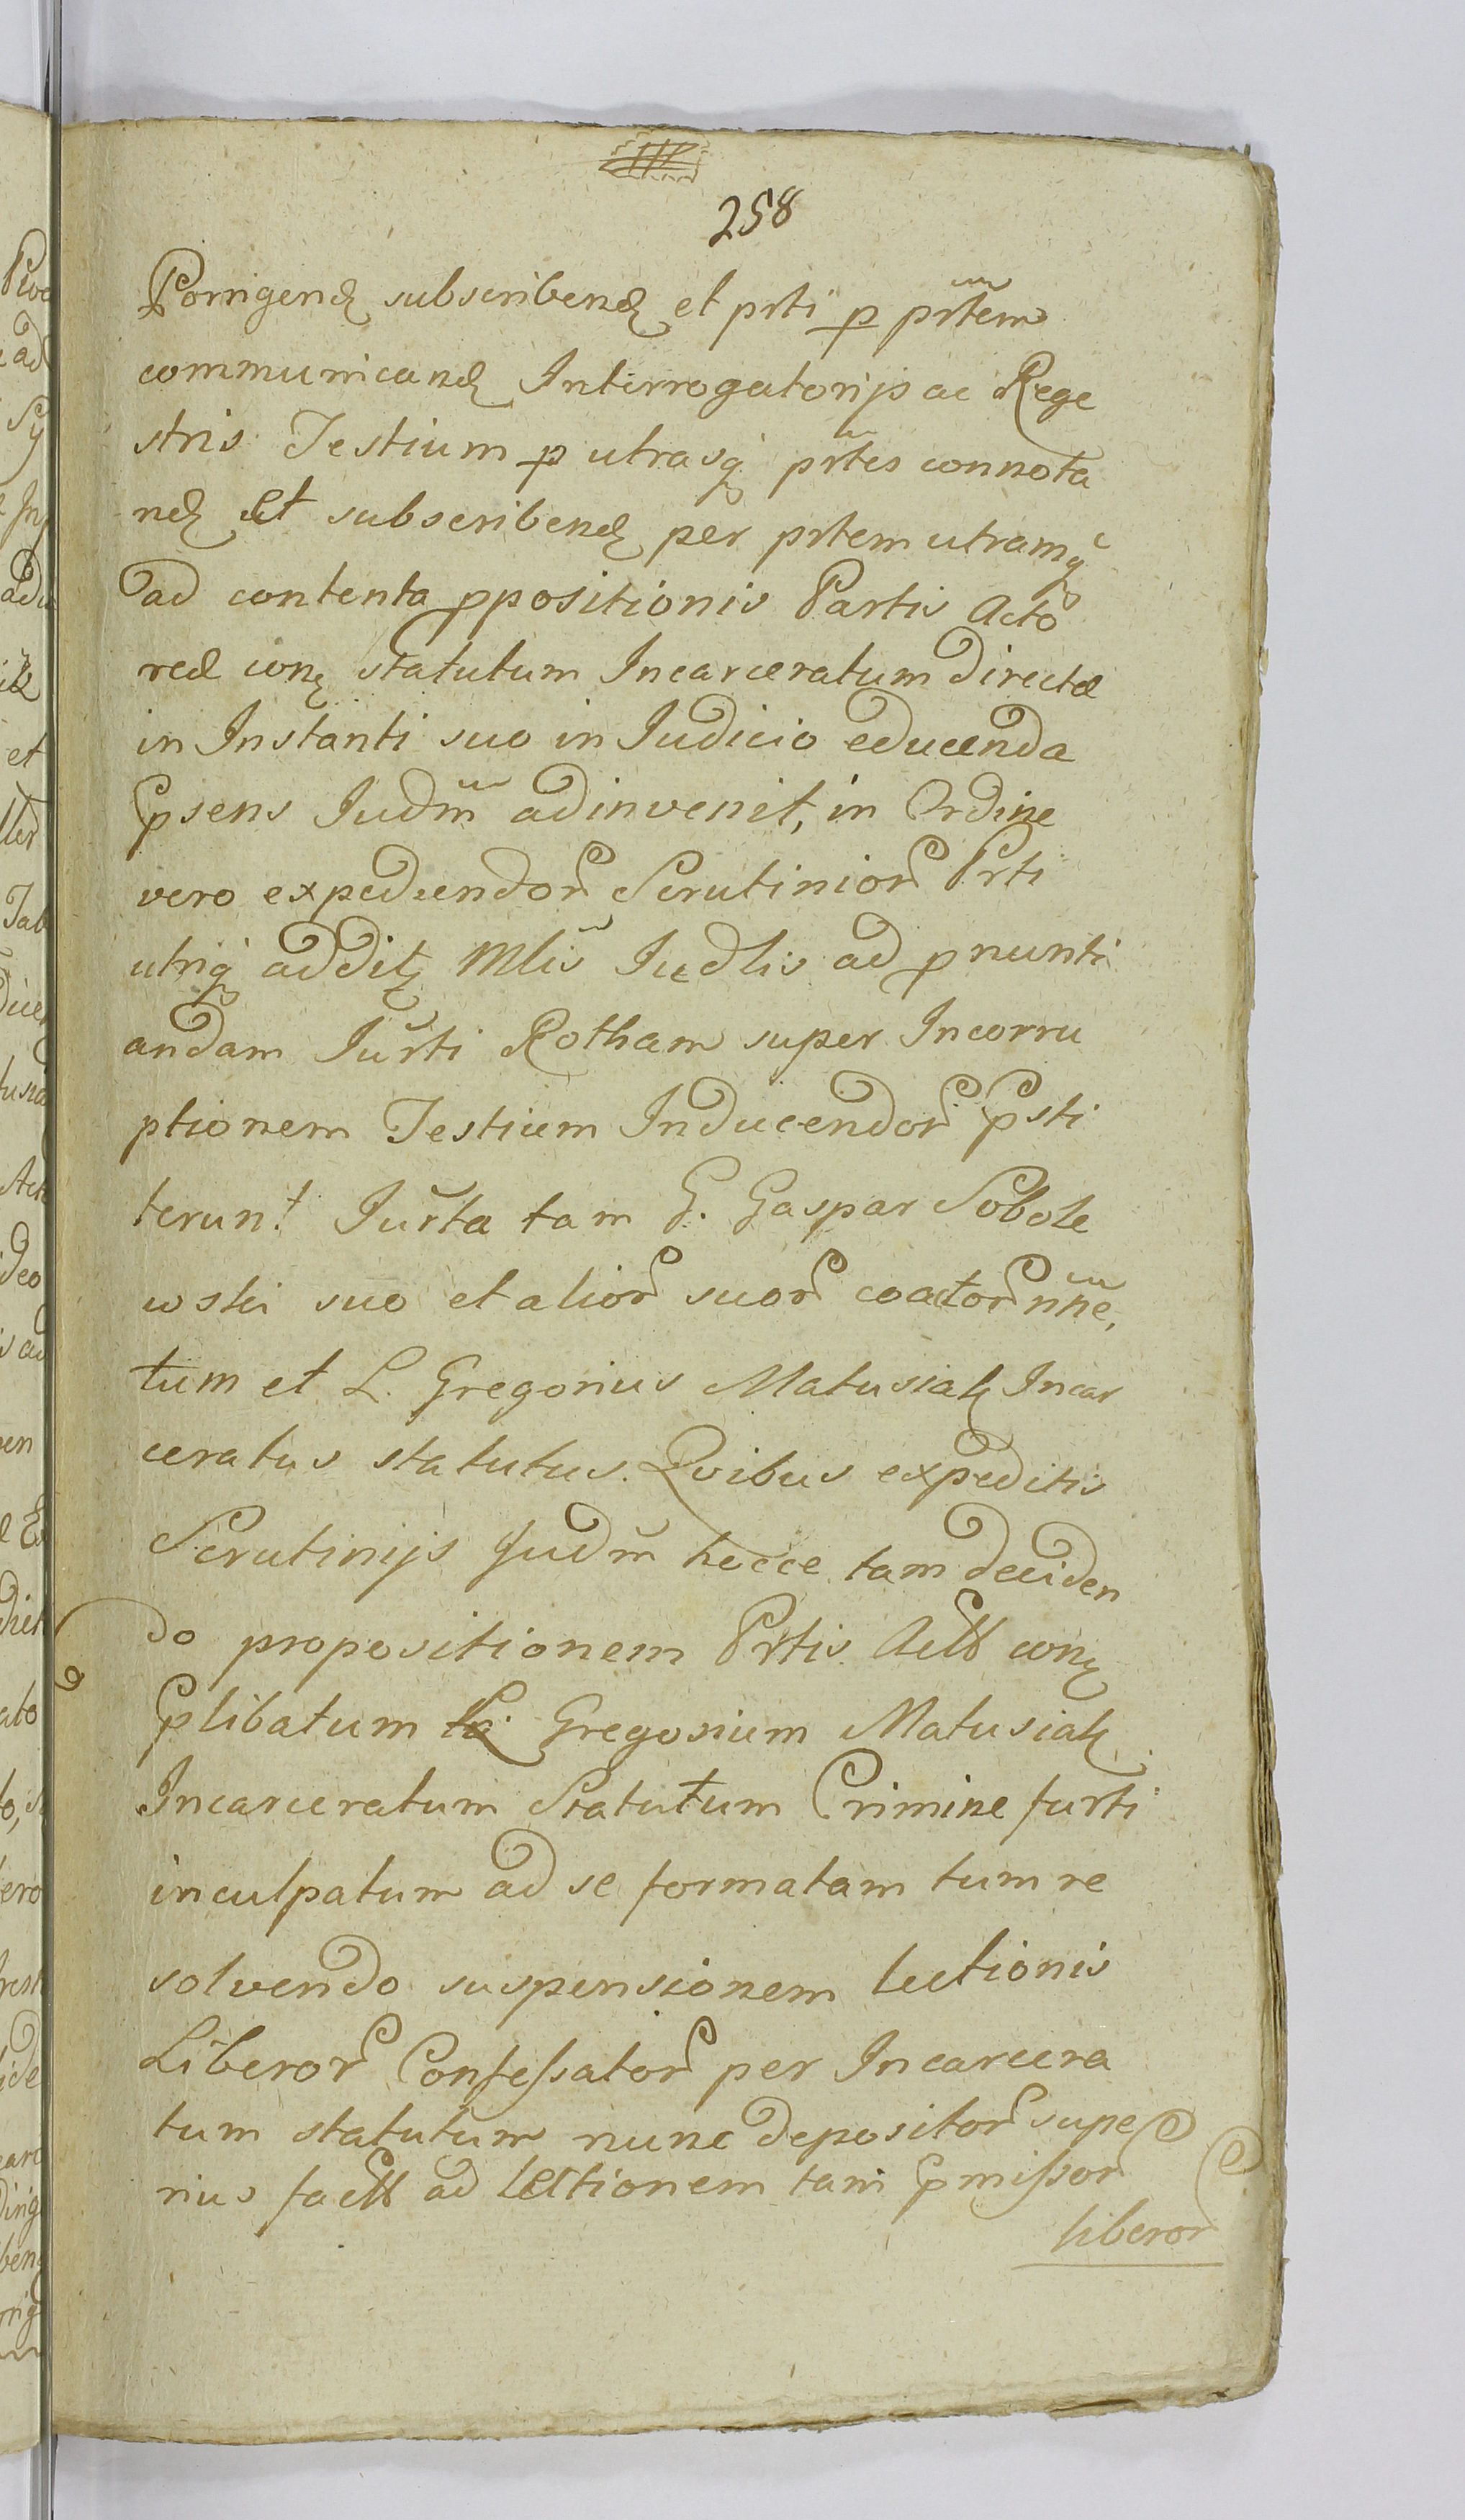 258
Porrigend subscribend et prti p prtem
communicand Interrogatorijs ac Rege
stris Testium p utrasq prtes connota
nd et subscribend per prtem utramq
ad contenta ppositionis Partis Acto
reæ con statutum Incarceratum directæ
in Instanti suo in Iudicio educenda
Psens Judm̃ adinvenit, in Ordine
vero expediendor Scrutinior Prti
utriq addit Mlis Iudlis ad pnunti
andam Iurti Rotham super Incorru
ptionem Testium Inducendor Psti
terunt Iurta tam G. Gaspar Sobole
wski suo et alior suor coactor nñe,
tum et L. Gregorius Matusiak Incar
ceratus statutus. Quibus expeditis
Scrutinijs Judm̃ hecce tam deciden
do propositionem Prtis Actt con
Plibatum L. Gregorium Matusiak
Incarceratum Statutum Crimine furti
inculpatum ad se formatam tum re
solvendo suspensionem lectionis
Liberor Confeſsator per Incarcera
tum statutum nunc depositor supe
rius factt ad lectionem tam Pmiſsor
liberor